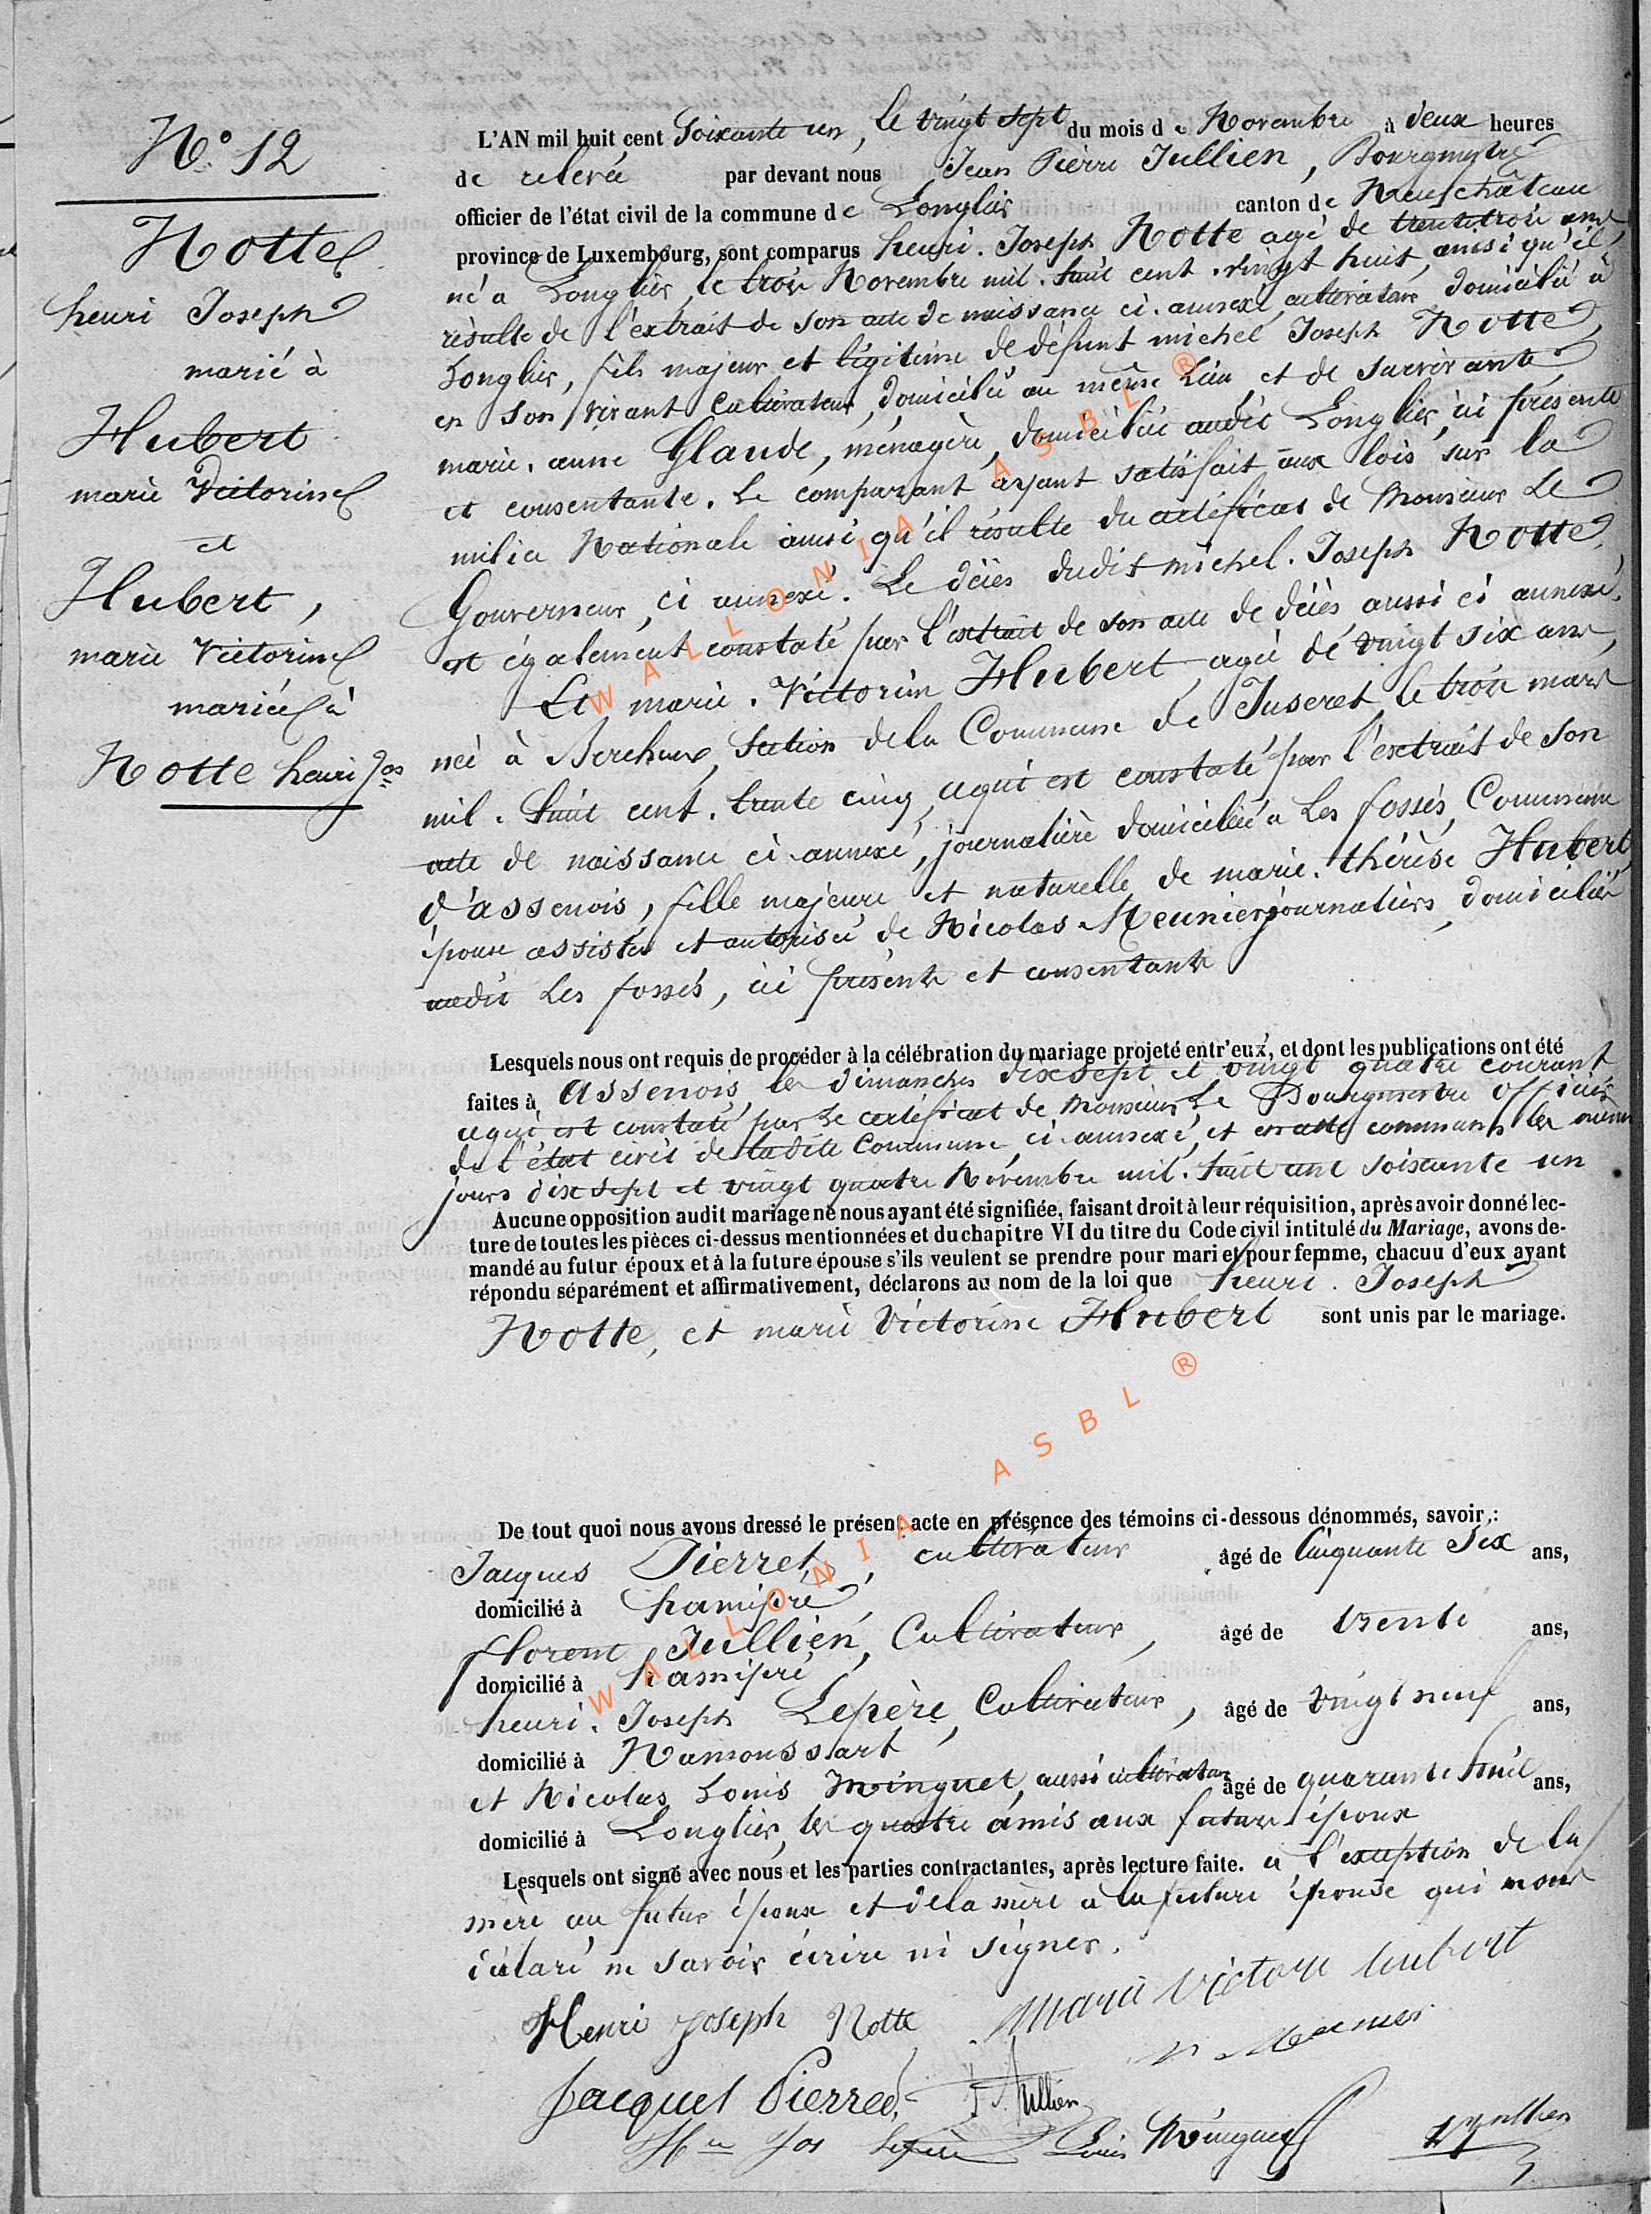 N° 12
Notte
henri Joseph
marié à
Hubert
marie Victorine
et
Hubert,
marie Victorine
mariée à
Notte henri Jos
L'AN mil huit cent Soixante un, le vingt sept du mois de Novembre à deux heures
de relevé par devant nous Jean Pierre Jullien, Bourgmestre
officier de l'état civil de la commune de Longlier canton de Neufchâteau
province de Luxembourg, sont comparus henri. Joseph Notte agé de trente trois ans,
né a Longlier, le trois Novembre mil. huit cent. vingt huit, ainsi qu'il
résulte de l'extrait de son acte de naissance ci. annexé, cultivateur, domicilié à
Longlier, fils majeur et légitime de défunt michel Joseph Notte,
en son vivant cultivateur, domicilié au même Lieu, et de survivante
marie. anne Glaude, ménagère, domiciliée audit Longlier, ici présente
et consentante. Le comparant ayant satisfait aux lois sur la
milice Nationale ainsi qu'il résulte du certificat de Monsieur Le
Gouverneur, ci annexé. Le décès dudit michel. Joseph Notte,
est également constaté par l'extrait de son acte de décès, aussi ci annexé.
Et marie. Victorine Hubert, agée de vingt six ans,
née à Bercheux, Section de la Commune de Juseret, le trois mars
mil. huit cent. trente cinq, cequi est constaté par l'extrait de son
acte de naissance ci. annexé, journalière domiciliée a Les fossés, Commune
d'assenois, fille majeure et naturelle de marie. thérèse Hubert,
épouse assistée et autorisée de Nicolas Meunier, journaliers, domiciliés
audit Les fossés, ici présente et consentante
Lesquels nous ont requis de procéder à la célébration du mariage projeté entr'eux, et dont les publications ont été
faites à Assenois, les dimanches dix sept et vingt quatre courant,
cequi est constaté par le certificat de Monsieur Le Bourgmestre officier
de l'état civil de ladite Commune, ci. annexé, et en cette commune les mêmes
jours dix sept et vingt quatre Novembre mil. huit cent soixante un
Aucune opposition audit mariage ne nous ayant été signifiée, faisant droit à leur réquisition, après avoir donné lec-
ture de toutes les pièces ci-dessus mentionnées et du chapitre VI du titre du Code civil intitulé du Mariage, avons de-
mandé au futur époux et à la future épouse s'ils veulent se prendre pour mari et pour femme, chacuu d'eux ayant
répondu séparément et affirmativement, déclarons au nom de la loi que henri. Joseph
Notte, et marie Victorine Hubert sont unis par le mariage.
De tout quoi nous avons dressé le présent acte en présence des témoins ci-dessous dénommés, savoir :
Jacques Pierret, cultivateur âgé de Cinquante Six ans,
domicilié à hamipré,
florent Jullien, Cultivateur, âgé de trente ans,
domicilié à hamipré,
henri. Joseph Lepère, Cultivateur, âgé de vingt neuf ans,
domicilié à Namoussart,
et Nicolas Louis Minguet, aussi cultivateur âgé de quarante huit ans,
domicilié à Longlier, les quatre amis aux futurs époux
Lesquels ont signé avec nous et les parties contractantes, après lecture faite. a l'exception de la
mère au futur époux et de la mère à la future épouse qui nous
déclaré ne savoir écrire ni signer.
Henri Joseph Notte Marie Victore hubert
N Meunier
Jacques Pierred F. Jullien
Hri Jos Lepère Louis Minguet Jullien
WALLONIA ASBL ®
WALLONIA ASBL ®